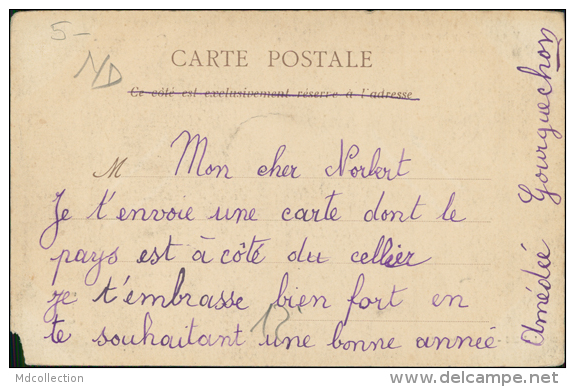 5-
ND
CARTE POSTALE
Ce côté est exclusivement réservé à l'adresse
M Mon cher Norbert
Je t'envoie une carte dont le
pays est à côté du cellier
je t'embrasse bien fort en
te souhaitant une bonne année
12
Amédée Gourguechon
Mdcollection
delcampe.net